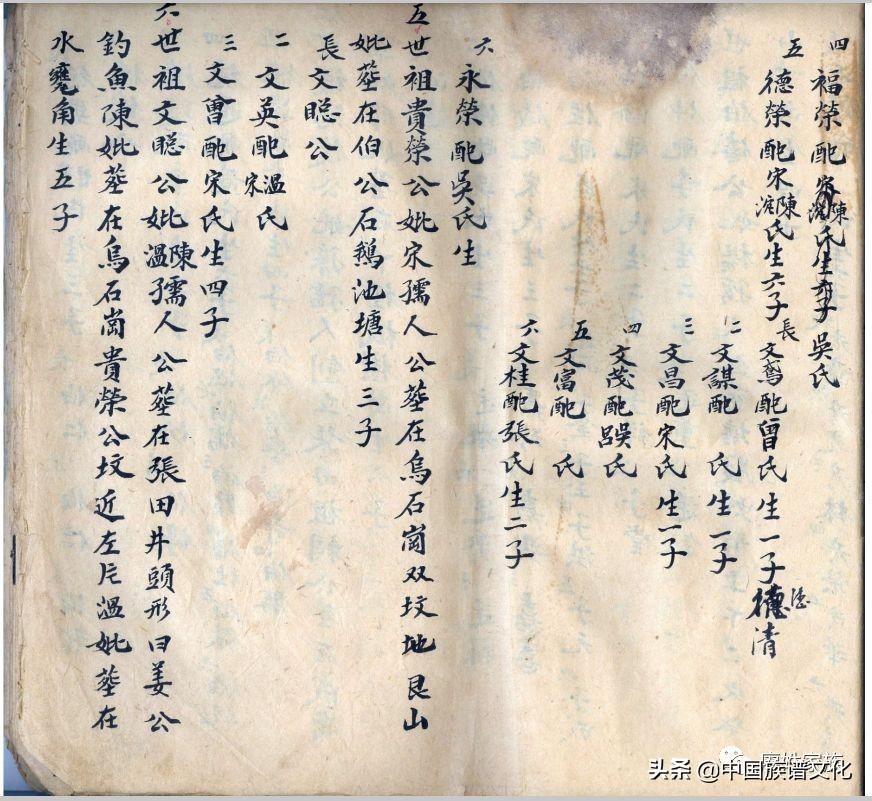 四 福榮配 陳氏生 子 吳氏
五 德榮配宋陳氏生六子
長 文鸞配曾氏生一子 德清
二 文謀配 氏生一子
三 文昌配宋氏生一子
四 文茂配吳氏
五 文富配 氏
六 文桂配張氏生二子
六 永榮配吳氏生
五世祖貴榮公妣宋孺人公塟在烏石崗双坟地艮山
妣塟在伯公石鵝池塘生三子
長文聪公
二 文英配温宋氏
三 文曾配宋氏生四子
六世祖文聪公妣陳溫孺人公塟在張田井頭形曰姜公
釣魚陳妣塟在烏石崗貴榮公坟近左片溫妣塟在
水 角生五子
头条 @中国族谱文化